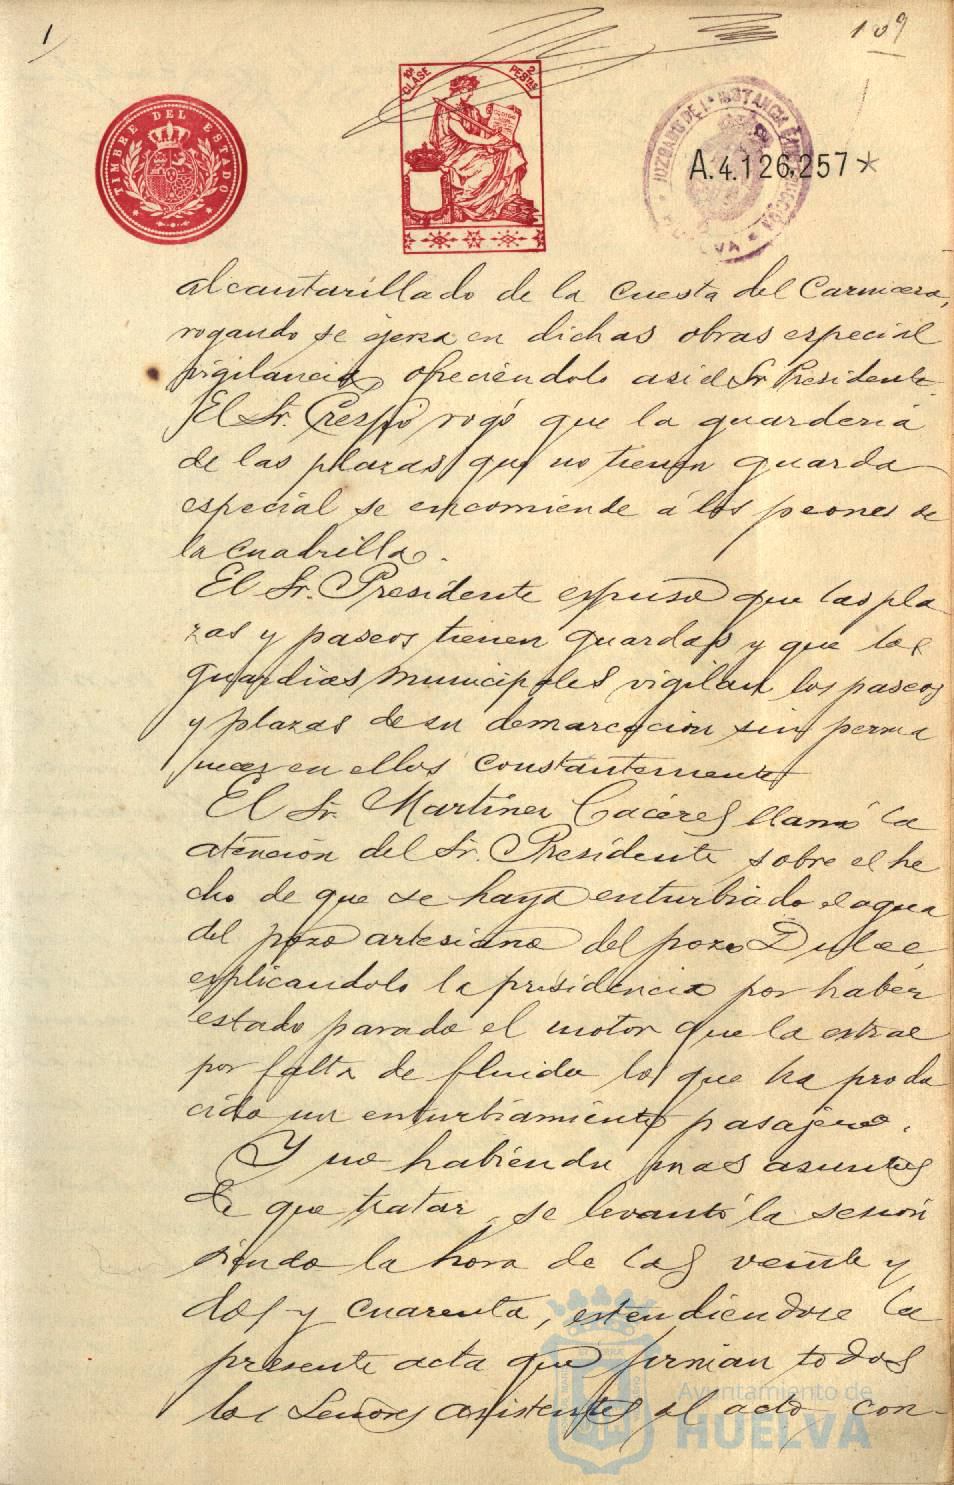 1
109
TIMBRE DEL ESTADO
10ª CLASE
2 PESTAS
JUZGADO DE 1ª INSTANCIA É INSTRUCCIÓN
HUELVA
A.4.126,257*
alcantarillado de la cuesta del Carnicero,
rogando se ejerza en dichas obras especial
vigilancia, ofreciéndolo asi el Sr Presidente.
El Sr. Crespo rogó que la guarderia
de las plazas que no tienen guarda
especial se encomiende á los peones de
la cuadrilla.
El Sr. Presidente expuso que las pla
zas y paseos tienen guardas y que los
guardias municipales vigilan los paseos
y plazas de su demarcacion sin perma
necer en ellos constantemente
El Sr. Martinez Cáceres llamó la
atención del Sr. Presidente sobre el he
cho de que se haya enturbiado el agua
del pozo artesiano del pozo Dulce
explicandolo la présidencia por haber
estado parado el motor que la extrae
por falta de fluido lo que ha produ
cido un enturbiamiento pasajero.
Y no habiendo mas asuntos
de que tratar se levantó la sesión
siendo la hora de las veinte y
dos y cuarenta, estendiendose la
presente acta que firman todos
los Señores asistentes al acto con-
Ayuntamiento de
HUELVA